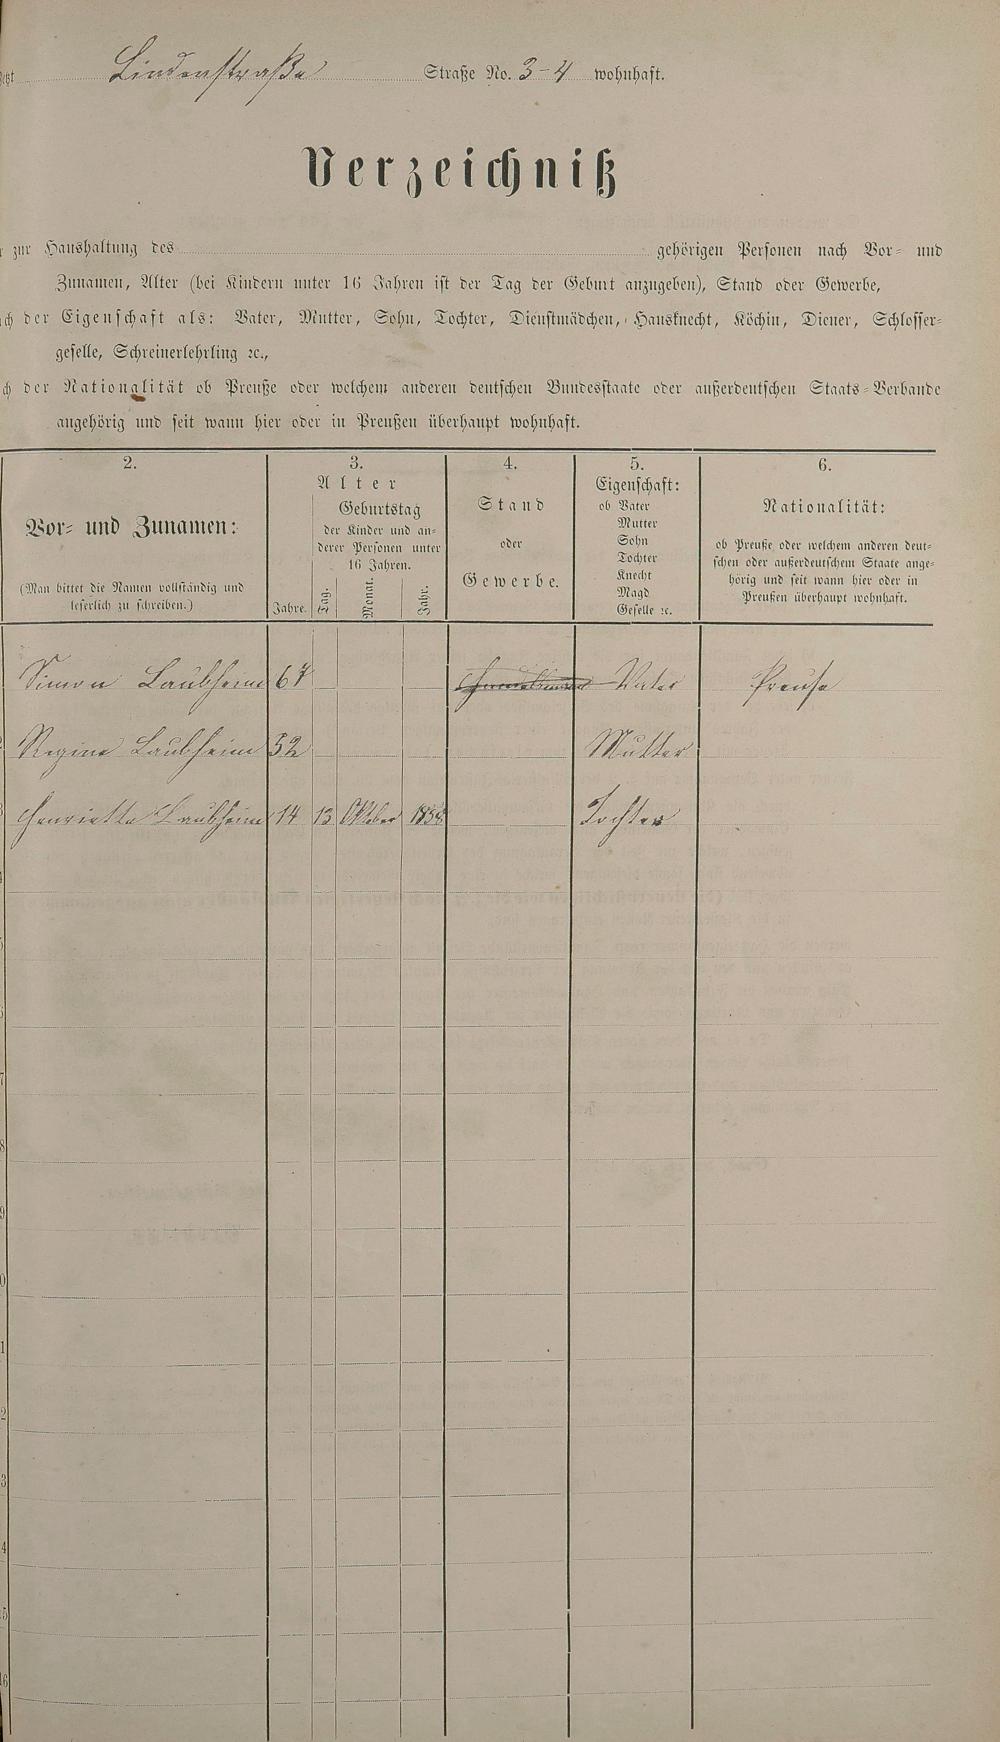 Lindenstraße Straße No. 3-4 wohnhaft.
Verzeichniß
zur Haushaltung des gehörigen Personen nach Vor- und
Zunamen, Alter (bei Kindern unter 16 Jahren ist der Tag der Geburt anzugeben), Stand oder Gewerbe,
der Eigenschaft als: Vater, Mutter, Sohn, Tochter, Dienstmädchen, Hausknecht, Köchin, Diener, Schlosser-
geselle, Schreinerlehrling ꝛc.,
der Nationalität ob Preuße oder welchem anderen deutschen Bundesstaate oder außerdeutschen Staats-Verbande
angehörig und seit wann hier oder in Preußen überhaupt wohnhaft.
2.
Vor- und Zunamen:
(Man bittet die Namen vollständig und
leserlich zu schreiben.)
3.
Alter
Geburtstag
der Kinder und an-
derer Personen unter
16 Jahren.
Jahre.
Tag.
Monat.
Jahr.
4.
Stand
oder
Gewerbe.
5.
Eigenschaft:
ob Vater
Mutter
Sohn
Tochter
Knecht
Magd
Geselle ꝛc.
6.
Nationalität:
ob Preuße oder welchem anderen deut-
schen oder außerdeutschem Staate ange-
hörig und seit wann hier oder in
Preußen überhaupt wohnhaft.
Simon Laubheim 67 Vater Preuße
Regine Laubheim 52 Mutter
Henriette Laubheim 14 13 Oktober 1858 Tochter